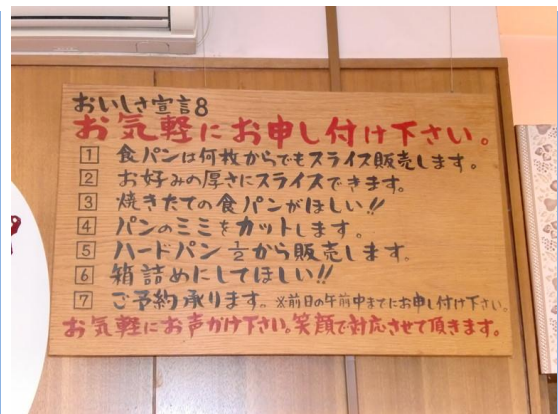 おいしさ宣言8
お気軽にお申し付け下さい。
1 食パンは何枚からでもスライス販売します。
2 お好みの厚さにスライスできます。
3 焼きたての食パンがほしい!!
4 パンのミミをカットします。
5 ハードパン½から販売します。
6 箱詰めにしてほしい!!
7 ご予約承ります。※前日の午前中までにお申し付け下さい。
お気軽にお声がけ下さい。笑顔で対応させて頂きます。